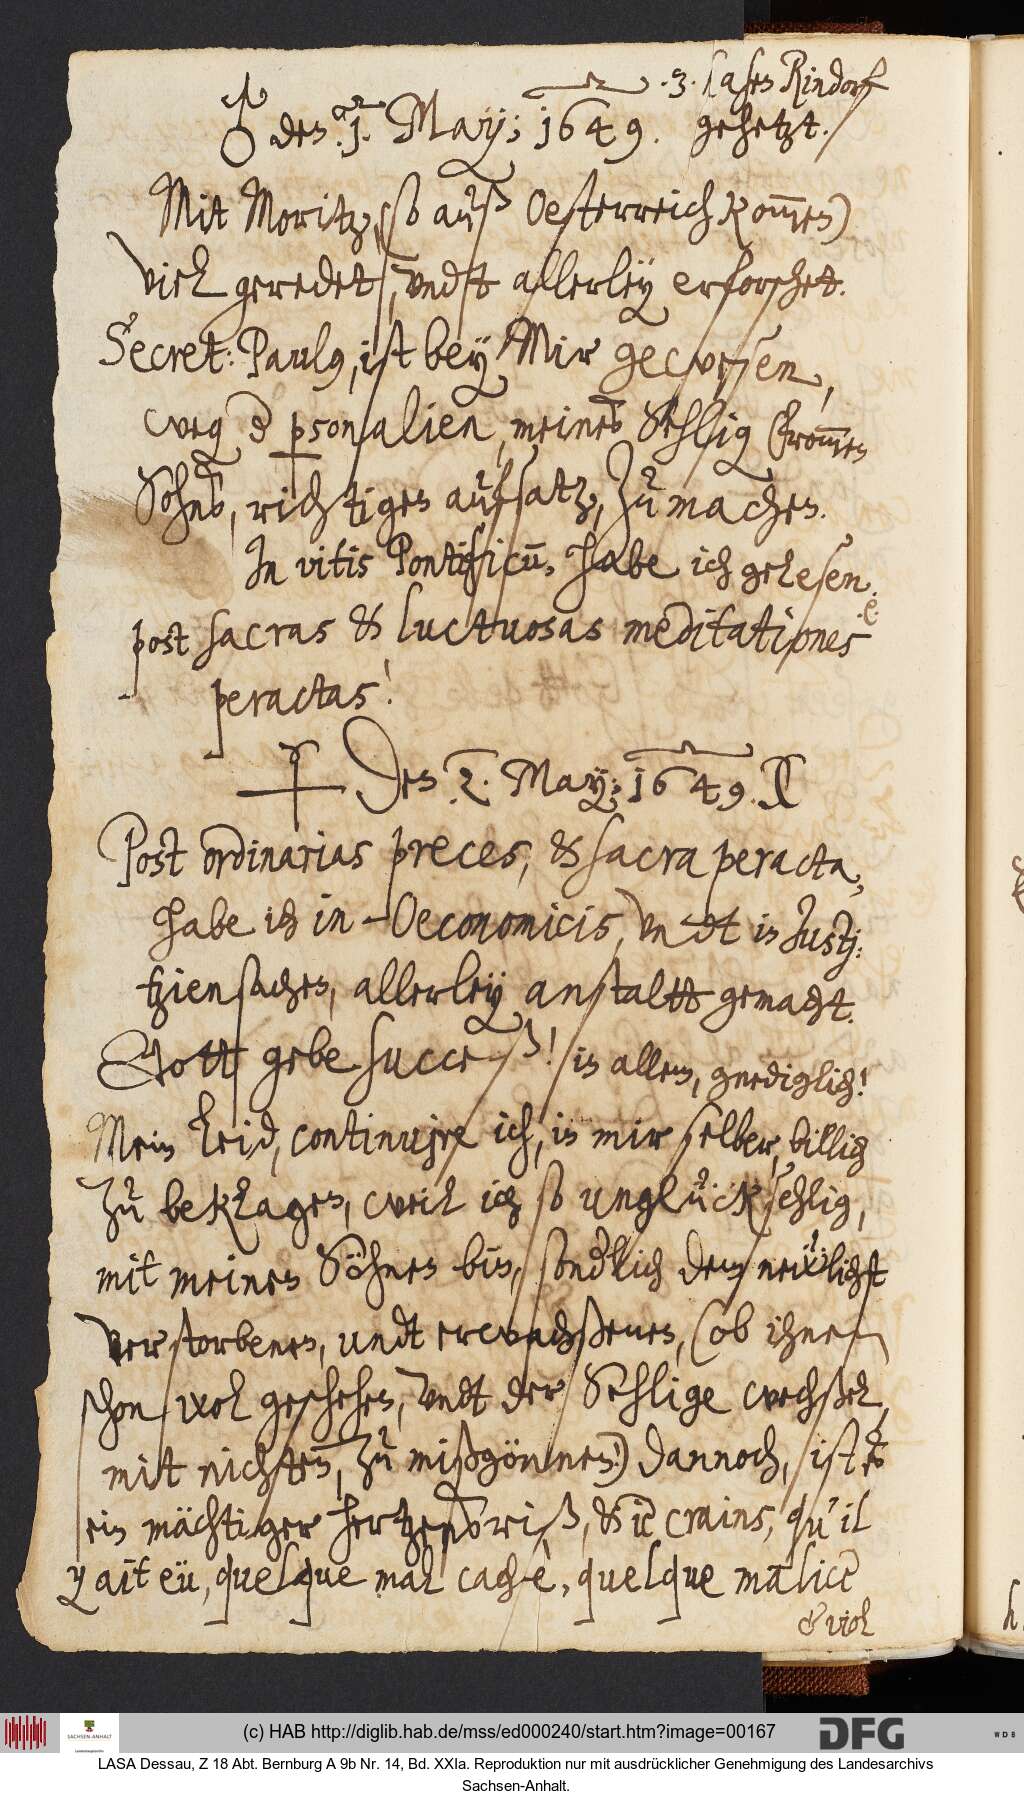 .3. hasen Rindorf
♂ den .1. May; 1649. gehetzt.
Mit Moritz, (so auß Oesterreich kom̄en)
viel geredet, undt allerley erforschet.
Secret: Paulg, ist bey Mir gewesen,
weg d psonalien, meines Sehlig from̄en
Sohns, richtigen aufsatz, zu machen.
In vitis Pontificū, habe ich gelesen.
post sacras & luctuosas meditationes .e.
peractas!
Den .2. May; 1649.
Post ordinarias preces, & sacra peracta,
habe ich in-Oeconomicis, undt in Justi:
tziensachen, allerley anstaltt gemacht.
Gott gebe succeß! in allem, gnediglich!
Mein Leid, continuire ich, in mir selber, billich
zu beklagen, weil ich so unglücksehlig,
mit meinen Söhnen bin, sond'lich dem neẅlichst
verstorbenen, undt erwachßenen, (ob ihnen
schon wol geschehen, undt der Sehlige wechßel,
mit nichten, zu mißgönnen:) dannoch, ist es
ein mächtiger hertzenßriß, & ie crains, qu'il
y ait eü, quelque mal caché, quelque malice
& viol
(c) HAB http://diglib.hab.de/mss/ed000240/start.htm?image=00167
SACHSEN-ANHALT
DFG
WDB
LASA Dessau, Z 18 Abt. Bernburg A 9b Nr. 14, Bd. XXIa. Reproduktion nur mit ausdrücklicher Genehmigung des Landesarchivs
Sachsen-Anhalt.